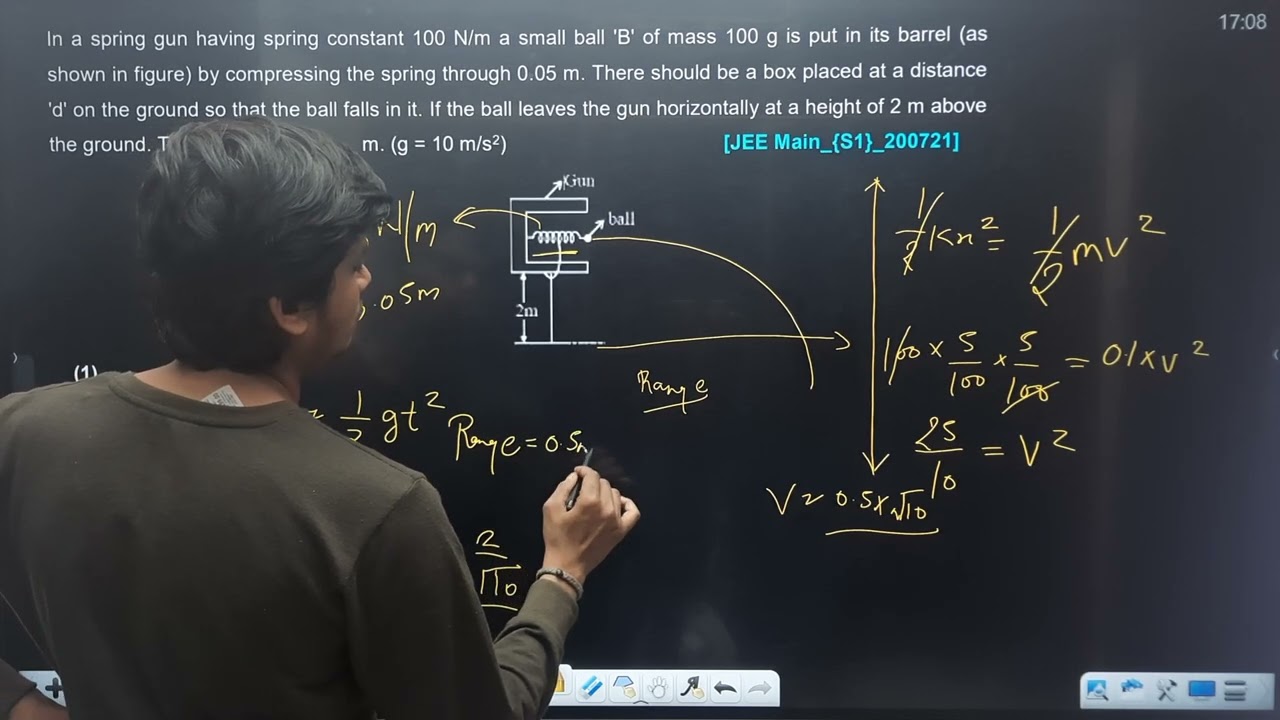 17:08
In a spring gun having spring constant 100 N/m a small ball 'B' of mass 100 g is put in its barrel (as
shown in figure) by compressing the spring through 0.05 m. There should be a box placed at a distance
'd' on the ground so that the ball falls in it. If the ball leaves the gun horizontally at a height of 2 m above
the ground. m. (g = 10 m/s²) [JEE Main_{S1}_200721]
Gun
ball
2m
N/m
.05m
(1)
Range
1/2 Kx² = 1/2 mv²
100 × 5/100 × 5/100 = 0.1×v²
25/10 = v²
V = 0.5×√10
= 1/2 gt²
Range = 0.5
2/√10